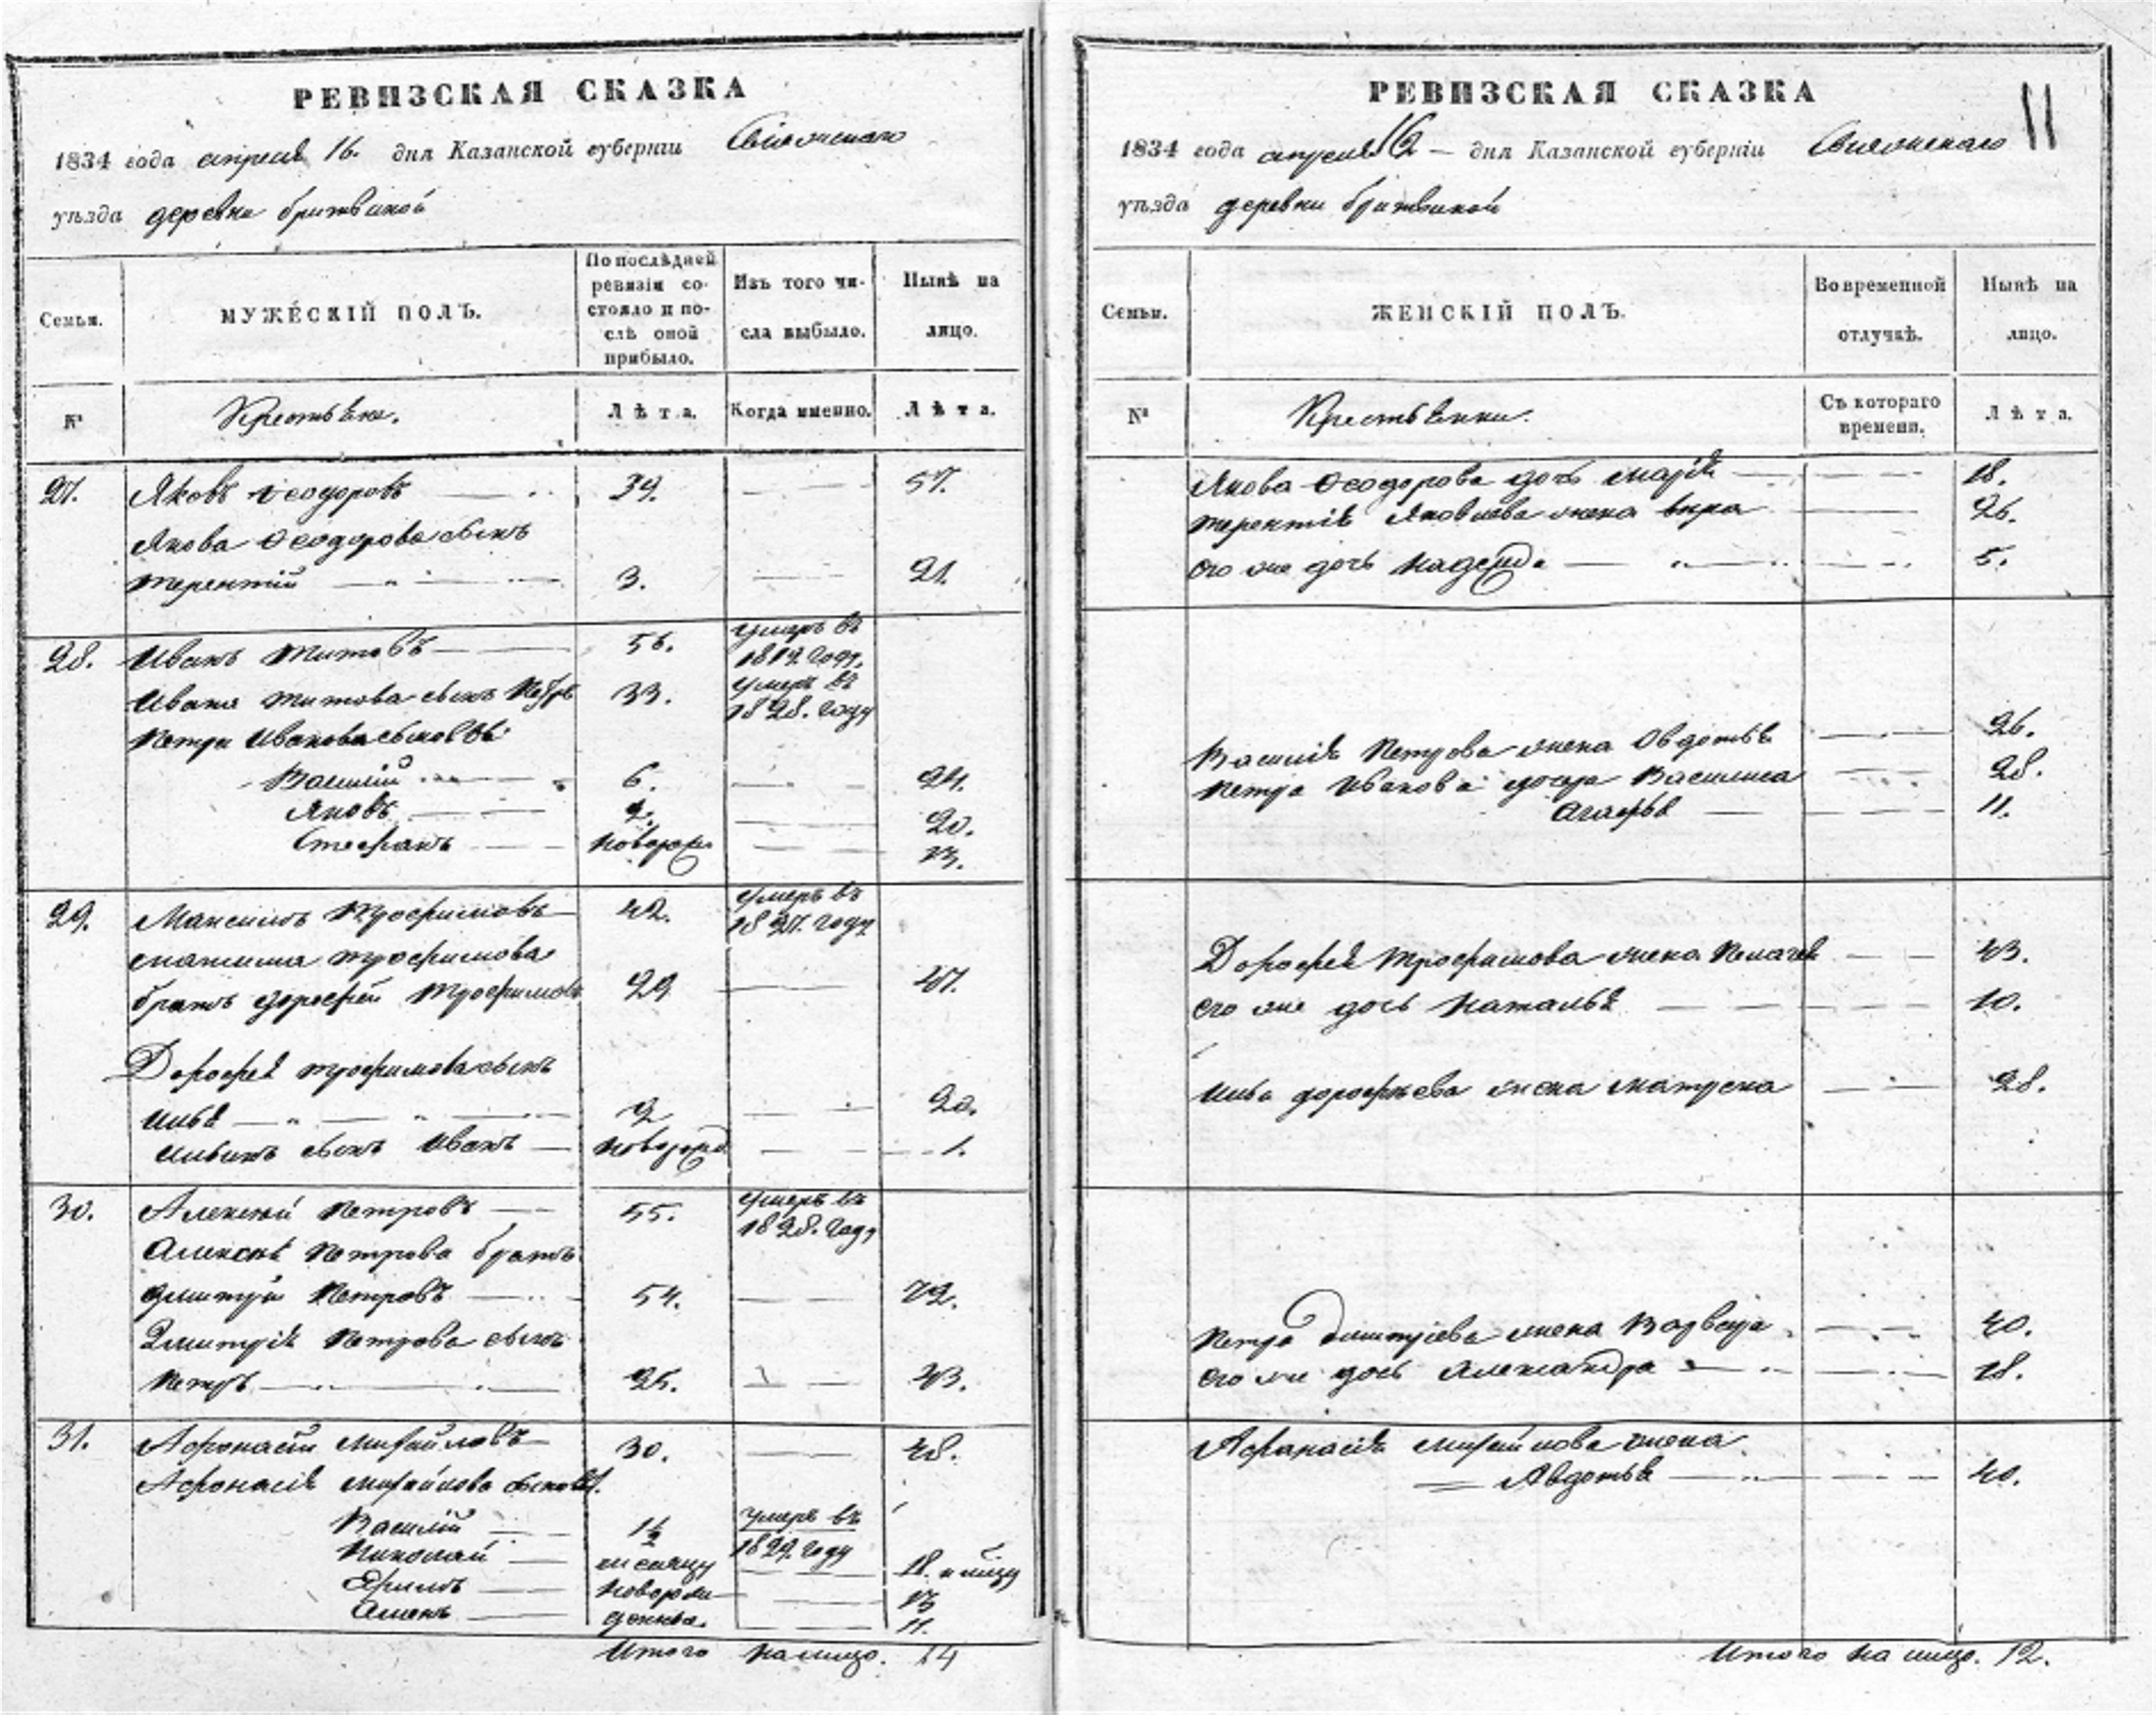 РЕВИЗСКАЯ СКАЗКА
1834 года апреля 16. дня Казанской губернiи Свiяжскаго
уѣзда деревни бритвиной
Семьи.
МУЖЕСКIЙ ПОЛЪ.
По послѣдней ревизiи состояло и послѣ оной прибыло.
Изъ того числа выбыло.
Нынѣ на лицо.
№
Крестьяне.
Лѣта.
Когда именно.
Лѣта.
27. Яковъ Ѳеодоровъ 39. 57.
Якова Ѳеодорова сынъ
терентiй 3. 21.
28. Иванъ Титовъ 56. умеръ въ 1819. году.
Ивана титова сынъ Петръ 33. умеръ въ 1828. году
Петра Иванова сыновья
Василiй 6. 24.
Яковъ 2. 20.
Стефанъ новорож. 13.
29. Максимъ Трофимовъ 42. умеръ въ 1827. году
максима трофимова
братъ дорофей Трофимовъ 29 47.
Дорофея трофимова сынъ
Илья 2 20.
Ильинъ сынъ Иванъ новорожд. 1.
30. Алексей Петровъ 55. умеръ въ 1828. году
Алексея Петрова братъ
дмитрiй Петровъ 54. 72.
Дмитрiя Петрова сынъ
Петръ 25. 43.
31. Афонасiй михайловъ 30. 48.
Афонасiя михайлова сыновья.
Василiй 1½ умеръ въ 1829. году
Николай месяцу 18. и месяцу
Ефимъ новорож- 13
Семенъ денные. 11.
Итого на лицо. 14
РЕВИЗСКАЯ СКАЗКА
11
1834 года апреля 16 дня Казанской губернiи Свiяжскаго
уѣзда деревни бритвиной
Семьи.
ЖЕНСКIЙ ПОЛЪ.
Во временной отлучкѣ.
Нынѣ на лицо.
№
Крестьянки.
Съ котораго времени.
Лѣта.
Якова Ѳеодорова дочь марья 18.
терентiя Яковлева жена вера 26.
его же дочь надежда 5.
Василiя Петрова жена Овдотья 26.
Петра Иванова дочери Василиса 28.
Агафья 11.
Дорофея Трофимова жена Пелагея 43.
его же дочь Наталья 10.
Ильи дорофеева жена матрена 28.
Петра дмитрiева жена Варвара 40.
его же дочь Александра 18.
Афанасiя михайлова жена
Авдотья 40.
Итого на лицо. 12.